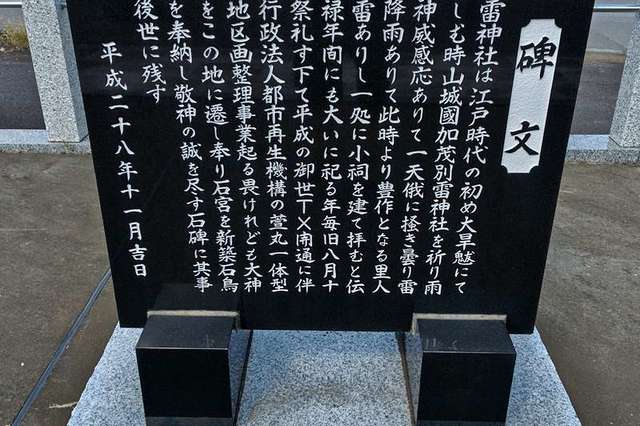 碑文
雷神社は江戸時代の初め大旱魃にて
しむ時山城國加茂別雷神社を祈り雨
神威感応ありて一天俄に掻き曇り雷
降雨ありて此時より豊作となる里人
雷ありし一処に小祠を建て拝むと伝
禄年間にも大いに祀る年毎旧八月十
祭礼す下て平成の御世TX開通に伴
行政法人都市再生機構の萱丸一体型
地区画整理事業起る畏けれども大神
をこの地に遷し奉り石宮を新築石鳥
を奉納し敬神の誠を尽す石碑に其事
後世に残す
平成二十八年十一月吉日